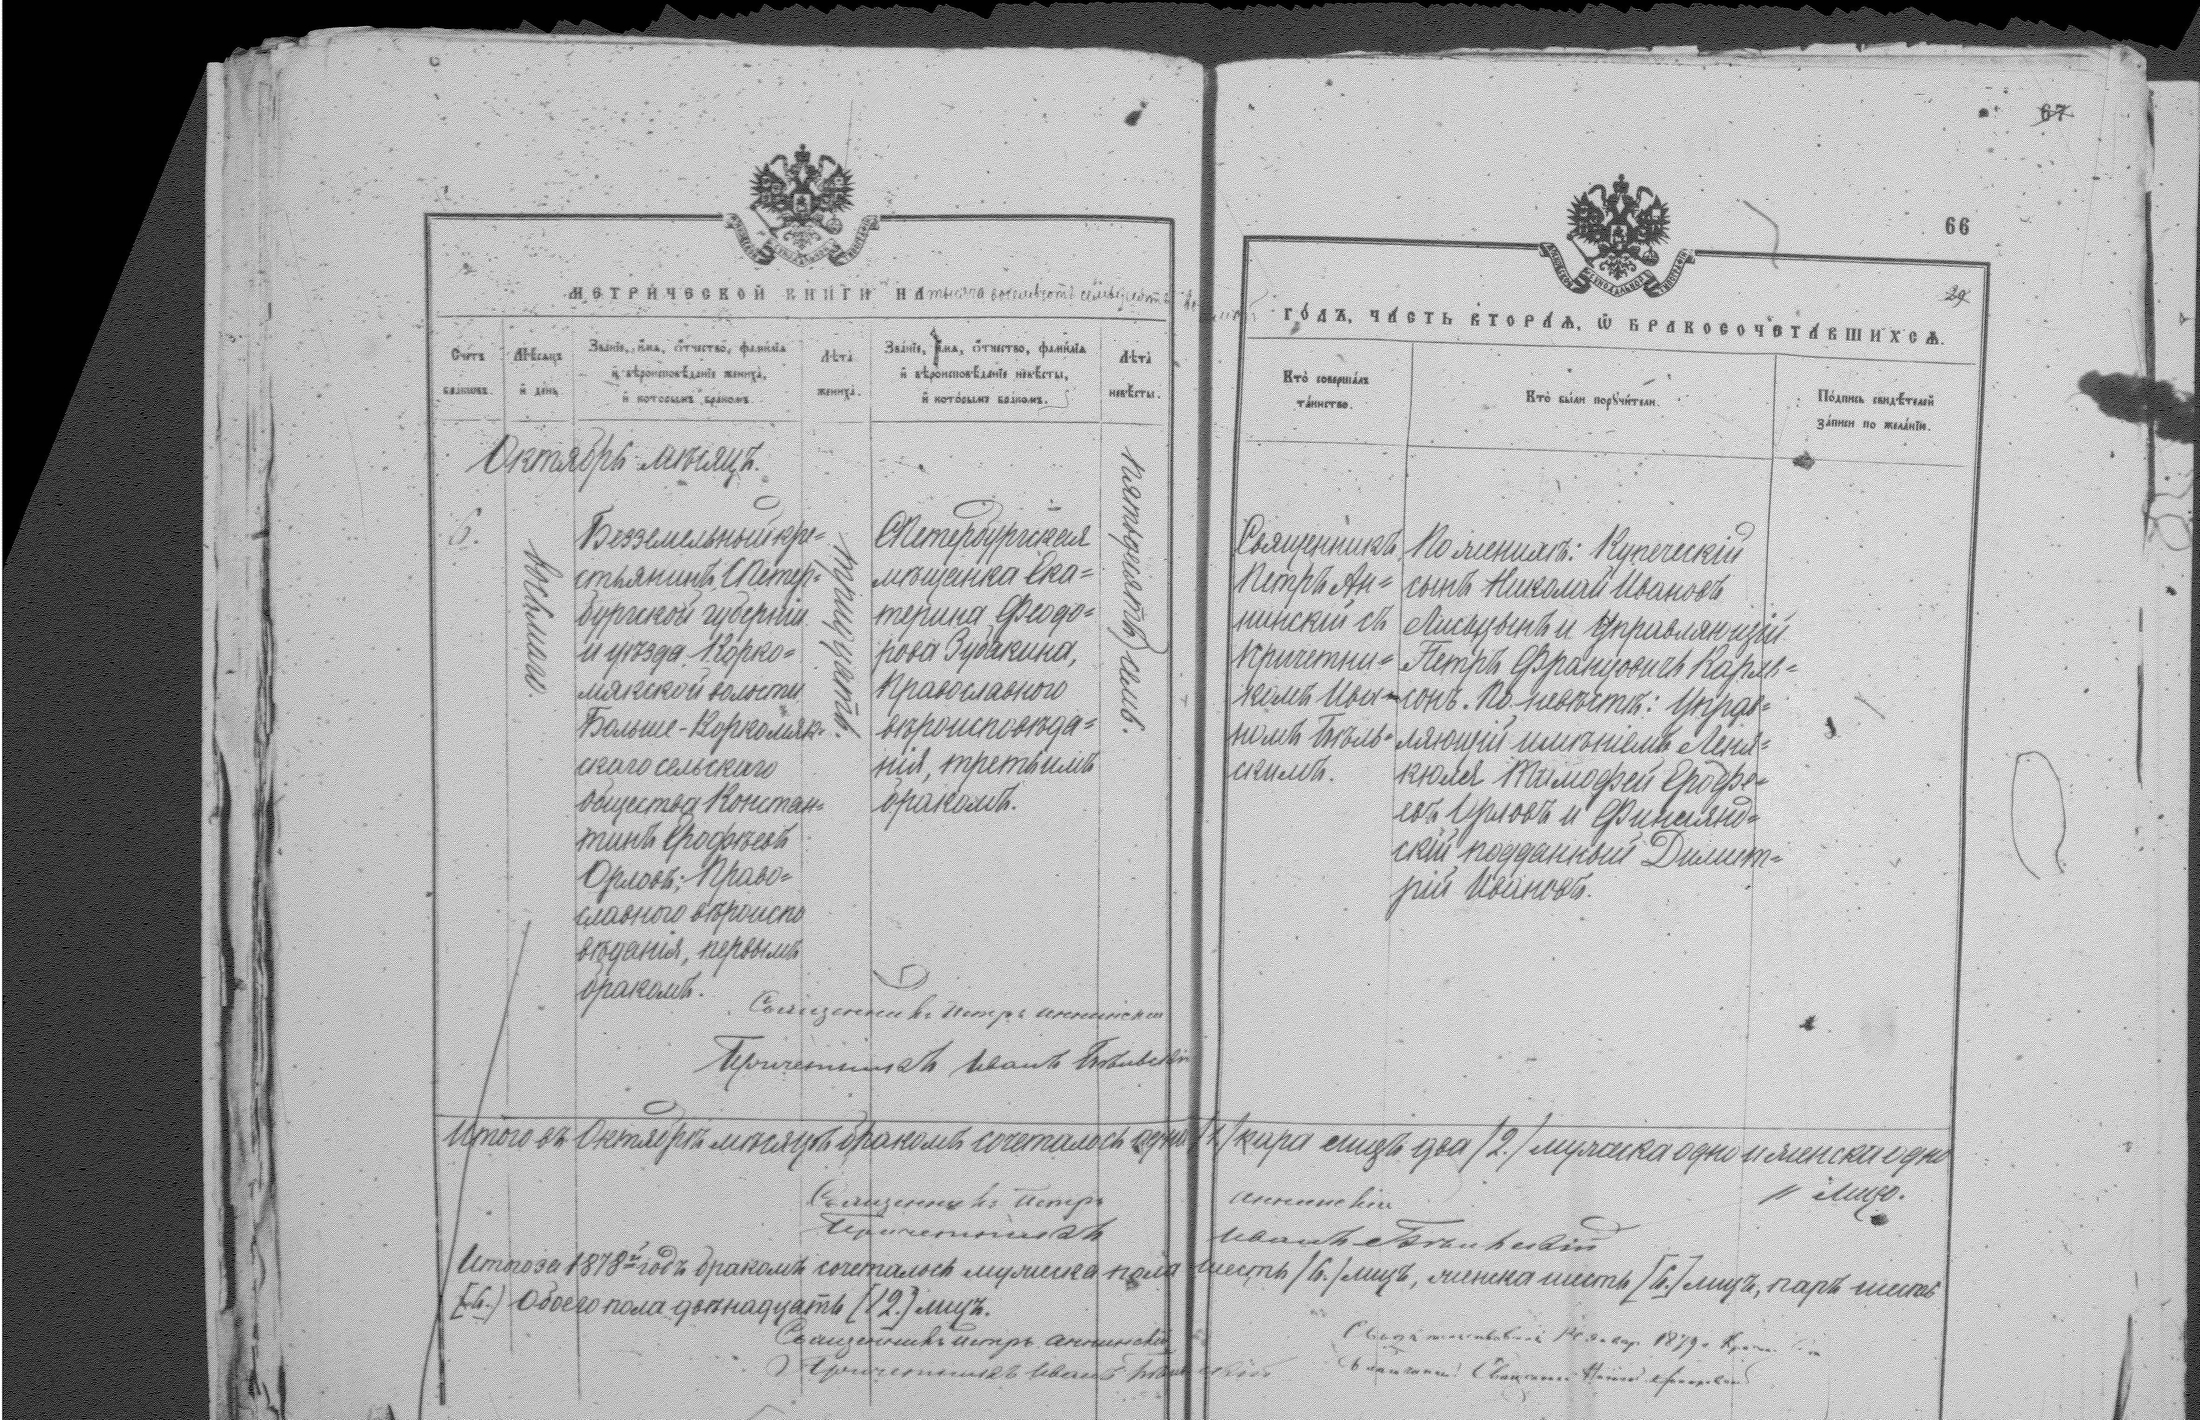 67
66
29
МЕТРИЧЕСКОЙ КНИГИ НА тысяча восемьсотъ семьдесятъ
ГОДЪ, ЧАСТЬ ВТОРАѦ, Ѡ БРАКОСОЧЕТАВШИХСѦ.
Счетъ браковъ.
Мѣсѧцъ и день
Званіе, имѧ, отчество, фамиліѧ и вѣроисповѣданіе жениха, и которымъ бракомъ.
Лѣта жениха.
Званіе, имѧ, отчество, фамиліѧ и вѣроисповѣданіе невѣсты, и которымъ бракомъ.
Лѣта невѣсты.
Кто совершалъ таинство.
Кто были поручители.
Подпись свидѣтелей записи по желанію.
Октябрь мѣсяцъ.
6.
восьмаго.
Безземельный кре=
стьянинъ СПетер=
бургской губерніи
и уѣзда Корко=
мякской волости
Больше-Коркомяк=
скаго сельскаго
общества Констан=
тинъ Ерофѣевъ
Орловъ; Право=
славного вѣроиспо
вѣданія, первымъ
бракомъ.
тридцать.
СПетербургская
мѣщанка Ека=
терина Феодо=
рова Зубакина,
Православного
вѣроисповѣда=
нія, третьимъ
бракомъ.
пятьдесятъ семь.
Священникъ
Петръ Ан=
нинскій съ
причетни=
комъ Ива=
номъ Бѣль=
скимъ.
По женихѣ: Купеческій
сынъ Николай Ивановъ
Лисицынъ и Управляющій
Петръ Францовичъ Карль=
сонъ. По невѣстѣ: Управ=
ляющій имѣніемъ Леня=
кюля Тимофей Ерофе=
евъ Орловъ и Финлянд=
скій подданный Димит=
рій Ивановъ.
Священникъ Петръ Аннинскій
Причетникъ Иванъ Бѣльскій
Итого въ Октябрѣ мѣсяцѣ бракомъ сочеталось одна /1./ пара лицъ два /2./ мужска одно и женска одно
лицо.
Священникъ Петръ Аннинскій
Причетникъ Иванъ Бѣльскій
Итого за 1878й годъ бракомъ сочеталось мужеска пола шесть /6./ лицъ, женска шесть [6.] лицъ, паръ шесть
[6.] Обоего пола двѣнадцать [12.] лицъ.
Священникъ Петръ Аннинскій
Причетникъ Иванъ Бѣльскій
1879